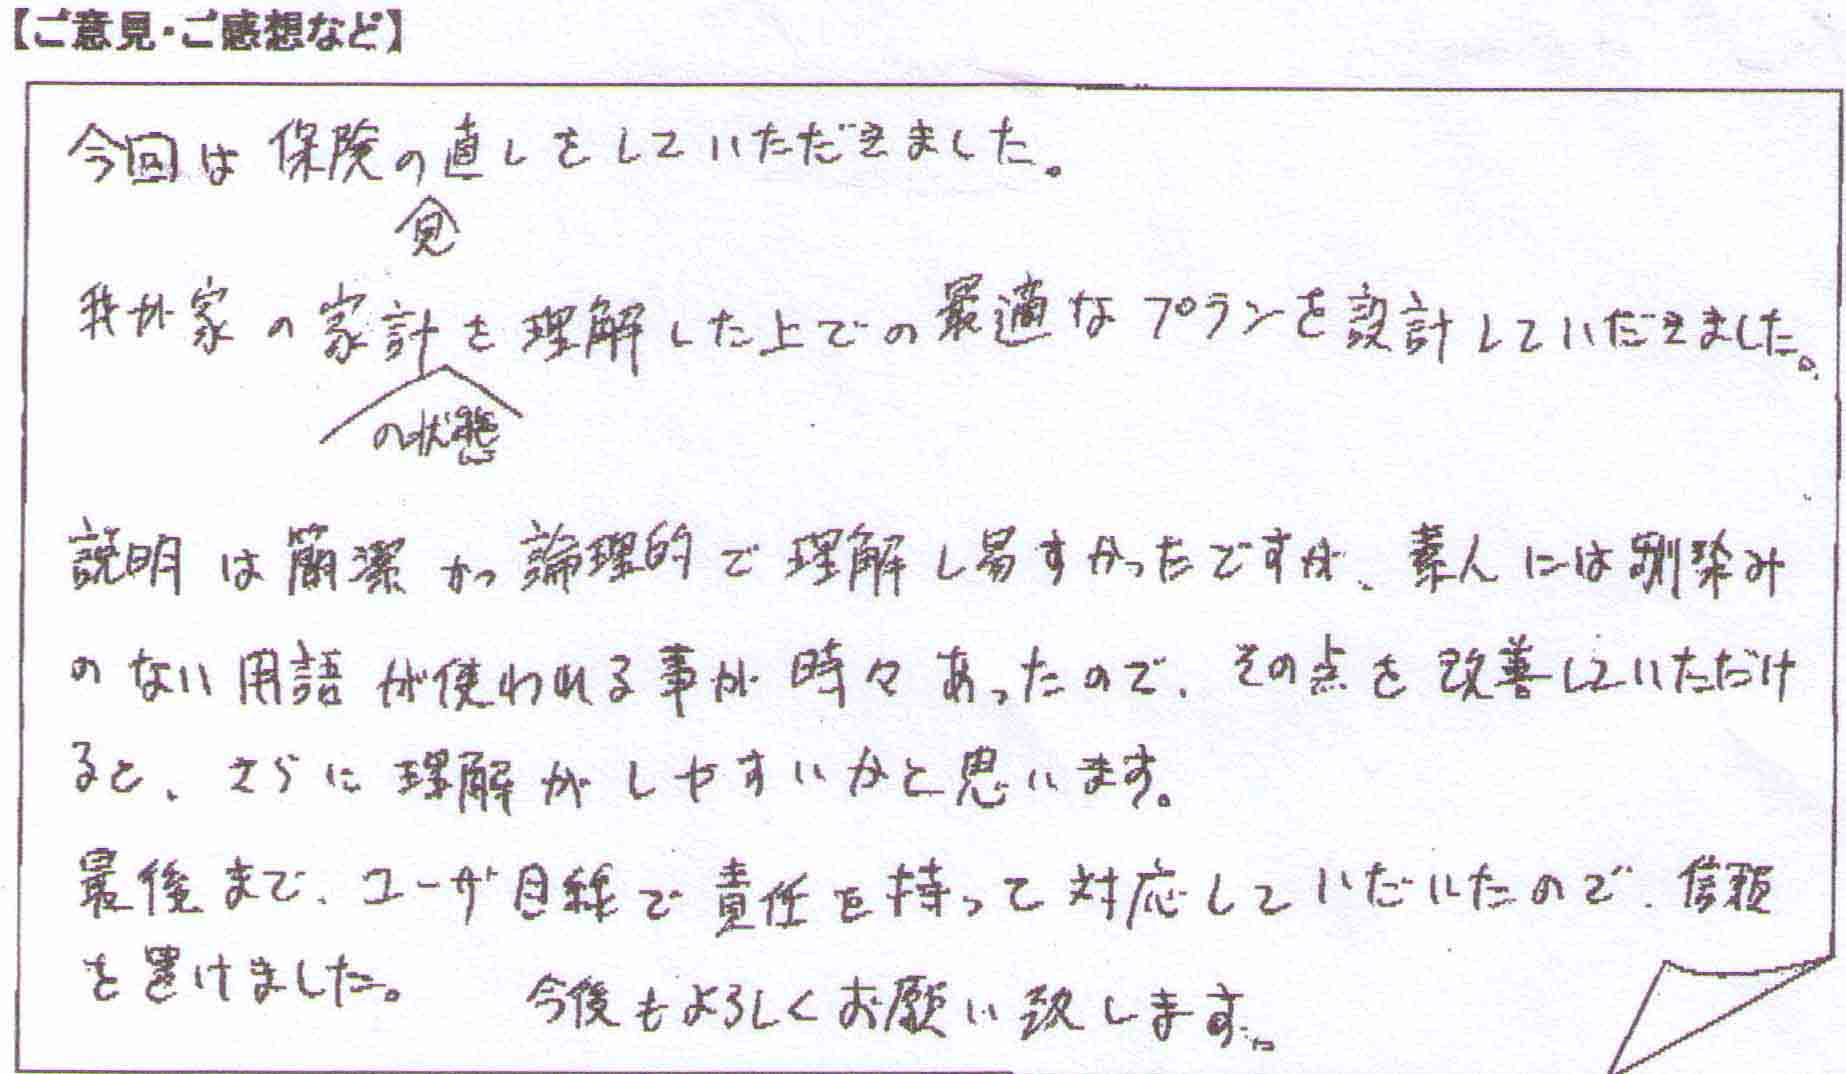 【ご意見・ご感想など】
今回は保険の見直しをしていただきました。
我が家の家計の状態を理解した上での最適なプランを設計していだきました。
説明は簡潔かつ論理的で理解し易すかったですが、素人には馴染み
のない用語が使われる事が時々あったので、その点を改善していただけ
ると、さらに理解がしやすいかと思います。
最後まで、ユーザ目線で責任を持って対応していだいたので、信頼
を置けました。 今後もよろしくお願い致します。